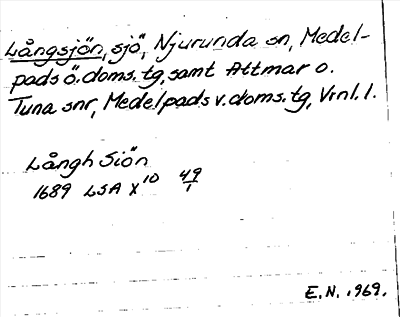 Långsjön, sjö, Njurunda sn, Medel-
pads ö. doms. tg, samt Attmar o.
Tuna snr, Medelpads v. doms. tg, Vrnl. l.
Långh Siön
1689 LSA X 10 49/1
E.N. 1969.